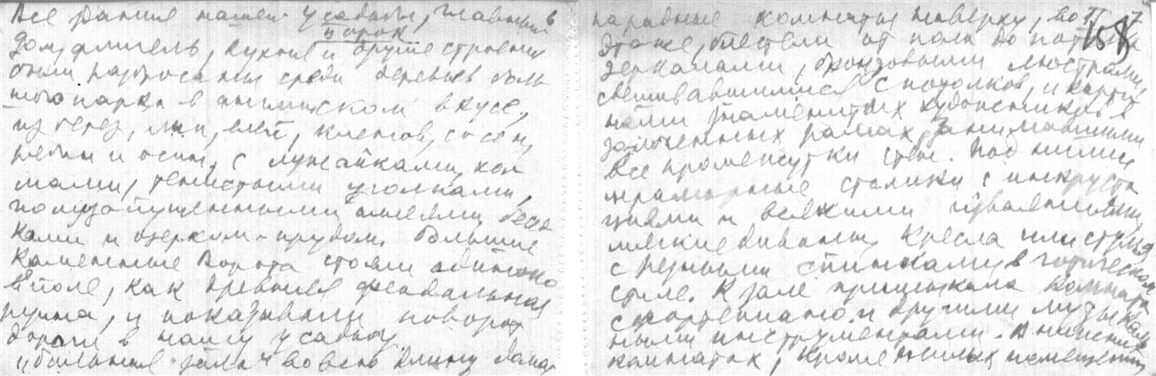 Все здания нашей усадьбы, главный
дом, флигель, кухня и другие строения
парок
были разбросаны среди деревьев боль
шого парка в английском вкусе,
из берез, лип, елей, кленов, сосен,
рябин и осин, с лужайками, хол
мами, тенистыми уголками,
полузапущенными аллеями, бесед
ками и озерком-прудом. Большие
каменные ворота стояли одиноко
в поле, как древняя феодальная
руина, и показывали поворот
дороги в нашу усадьбу.
"Большая зала" во всю длину дома
парадные комнаты наверху, во II
этаже, блестели от пола до потолка
зеркалами, бронзовыми люстрами,
свешивавшимися с потолков, и карти
нами знаменитых художников в
золоченных рамах, занимавшими
все промежутки стен. Под ними
мраморные столики с инкруста
циями и всякими изваяниями,
мягкие диваны, кресла или стулья
с резными спинками в готическом
стиле. К зале примыкала комната
с фортепиано и другими музыкаль
ными инструментами. В нижних
комнатах, кроме жилых помещений,